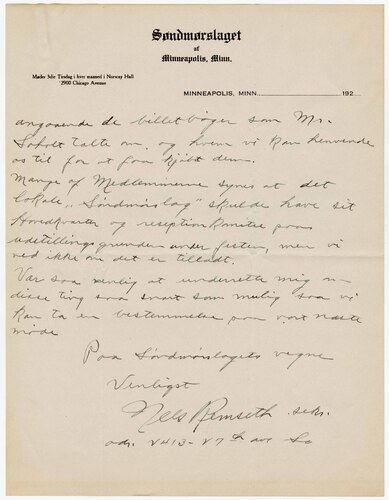 Søndmørslaget
of
Minneapolis, Minn.
Møder 3die Tirsdag i hver maaned i Norway Hall
2900 Chicago Avenue
MINNEAPOLIS, MINN. 192
angaaende de billetbøger som Mr.
Søholt talte om, og hvem vi kan henvende
os til for at faa kjøbt dem.
Mange af Medlemmerne synes at det
lokale „Søndmørslag" skulde have sit
Hovedkvarter og reception Komite paa
udstillings grunden under festen, men vi
ved ikke om det er tilladt.
Vær saa venlig at underrette mig om
disse ting saa snart som mulig saa vi
kan ta en bestemmelse paa vort næste
møde
Paa Søndmørslagets vegne
Venligst
Nels Remseth sekr.
adr. 2413-27th ave So